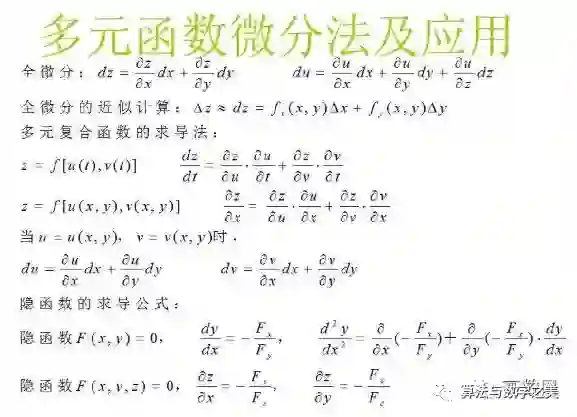 多元函数微分法及应用
全微分：dz = ∂z/∂x dx + ∂z/∂y dy    du = ∂u/∂x dx + ∂u/∂y dy + ∂u/∂z dz
全微分的近似计算：Δz ≈ dz = f_x(x, y)Δx + f_y(x, y)Δy
多元复合函数的求导法：
z = f[u(t), v(t)]    dz/dt = ∂z/∂u · ∂u/∂t + ∂z/∂v · ∂v/∂t
z = f[u(x, y), v(x, y)]    ∂z/∂x = ∂z/∂u · ∂u/∂x + ∂z/∂v · ∂v/∂x
当u = u(x, y)，v = v(x, y)时，
du = ∂u/∂x dx + ∂u/∂y dy    dv = ∂v/∂x dx + ∂v/∂y dy
隐函数的求导公式：
隐函数F(x, y) = 0，  dy/dx = −F_x/F_y，  d²y/dx² = ∂/∂x(−F_x/F_y) + ∂/∂y(−F_x/F_y) · dy/dx
隐函数F(x, y, z) = 0，  ∂z/∂x = −F_x/F_z，  ∂z/∂y = −F_y/F_z
算法与数学之美